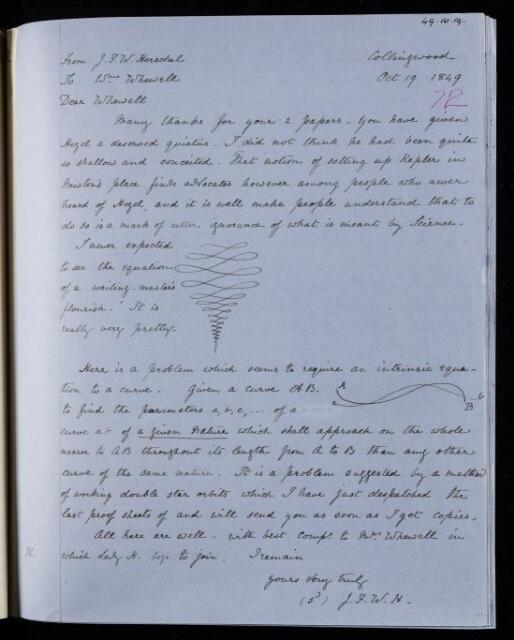 49.10.19.
From J.F.W. Herschel
Collingwood
To Wm Whewell
Oct 19 1849
72
Dear Whewell
Many thanks for your 2 papers - you have given
Hegel a deserved quietus. I did not think he had been quite
so shallow and conceited. That notion of setting up Kepler in
Newton's place finds advocates however among people who never
heard of Hegel, and it is well make people understand that to
do so is a mark of utter ignorance of what is meant by Science.
I never expected
to see the equation
of a writing-master's
flourish. It is
really very pretty.
Here is a problem which seems to require an intrinsic equa-
tion to a curve. Given a curve AB.
A
a
b
B
to find the parameters a, b, c, ... of a
curve ab of a given nature which shall approach on the whole
nearer to AB throughout its length from A to B than any other
curve of the same nature. It is a problem suggested by a method
of working double star orbits which I have just despatched the
last proof sheets of and will send you as soon as I get copies.
All here are well - with best compts. to Mrs Whewell in
which Lady H. begs to join. I remain
yours very truly
J. F. W. H.